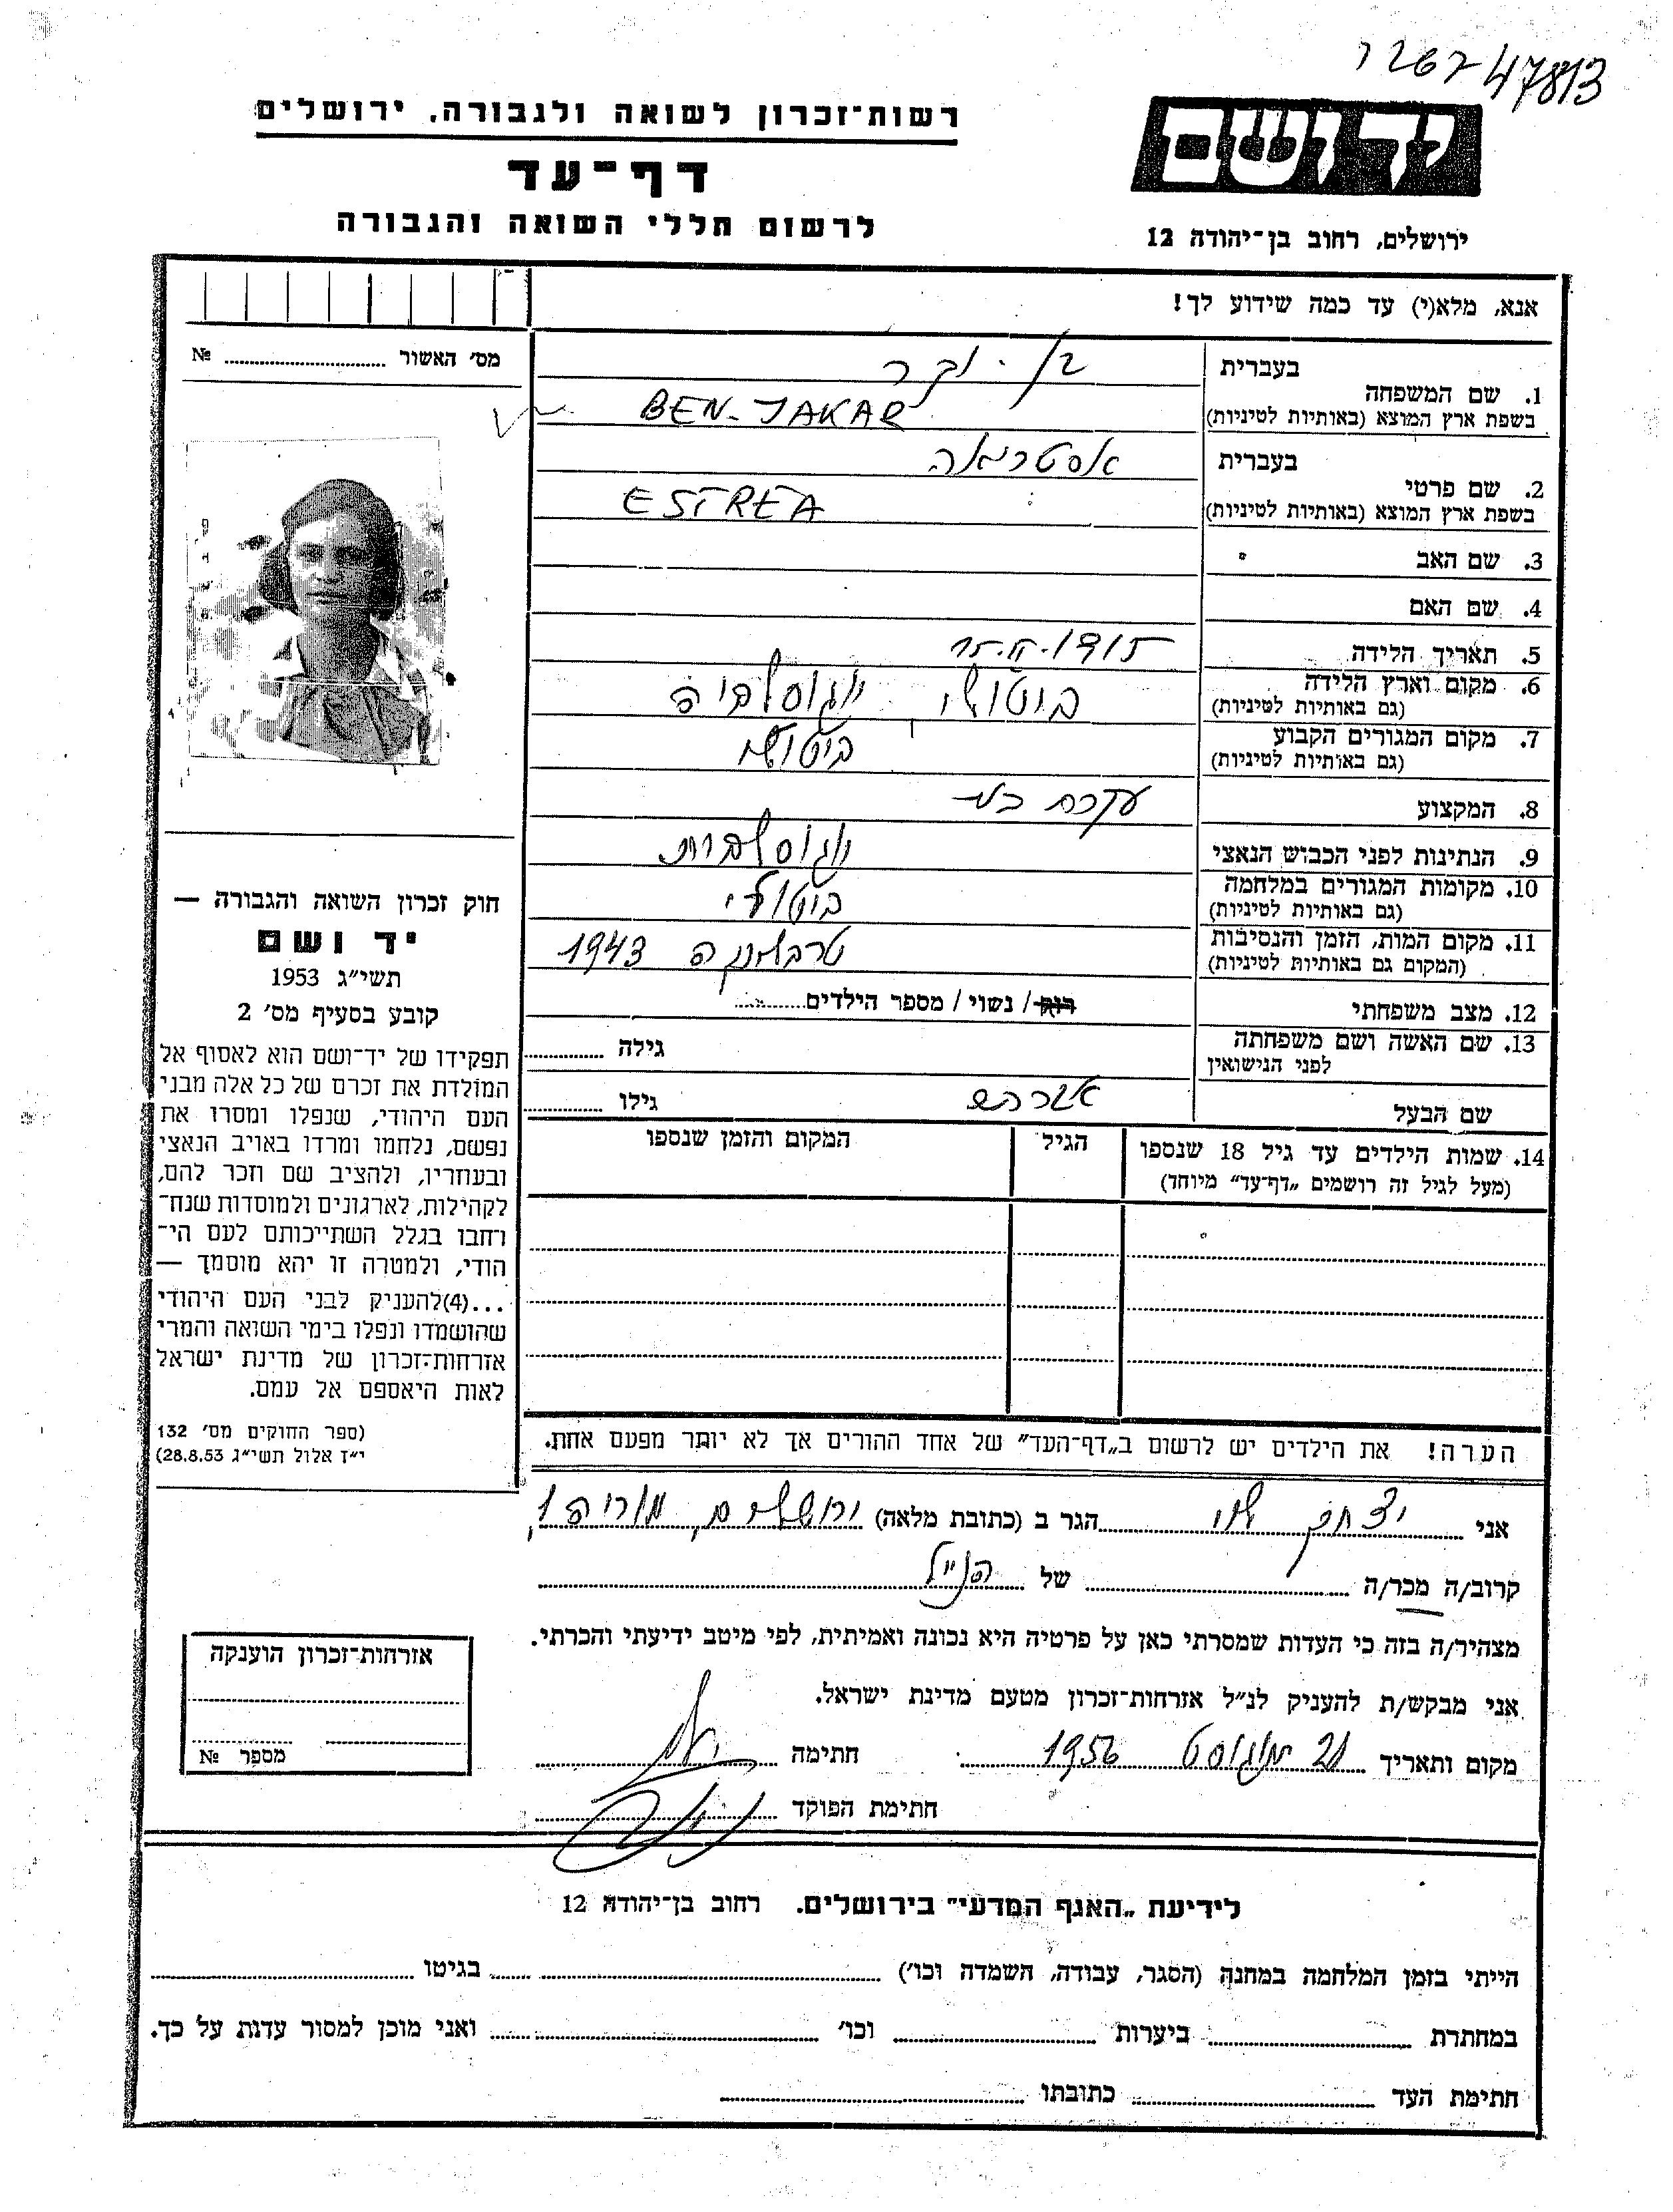 47813
רשות־זכרון לשואה ולגבורה. ירושלים
יד ושם
דף־עד
לרשום חללי השואה והגבורה
ירושלים, רחוב בן־יהודה 12
אנא, מלא(י) עד כמה שידוע לך!
מס׳ האשור № 
1. שם המשפחה
בעברית בן - יקר
בשפת ארץ המוצא (באותיות לטיניות) BEN-JAKAR
2. שם פרטי
בעברית אסטריאה
בשפת ארץ המוצא (באותיות לטיניות) ESTREA
3. שם האב
4. שם האם
5. תאריך הלידה
6. מקום וארץ הלידה ביטולי, יוגוסלביה
(גם באותיות לטיניות)
7. מקום המגורים הקבוע ביטולי
(גם באותיות לטיניות)
8. המקצוע עקרת בית
9. הנתינות לפני הכבוש הנאצי יוגוסלבית
10. מקומות המגורים במלחמה ביטולי
(גם באותיות לטיניות)
11. מקום המות, הזמן והנסיבות טרבלינקה 1943
(המקום גם באותיות לטיניות)
12. מצב משפחתי רוק / נשוי / מספר הילדים
13. שם האשה ושם משפחתה לפני הנישואין גילה
שם הבעל אברהם גילו
14. שמות הילדים עד גיל 18 שנספו הגיל המקום והזמן שנספו
(מעל לגיל זה רושמים „דף־עד״ מיוחד)
חוק זכרון השואה והגבורה —
יד ושם
תשי״ג 1953
קובע בסעיף מס׳ 2
תפקידו של יד־ושם הוא לאסוף אל
המולדת את זכרם של כל אלה מבני
העם היהודי, שנפלו ומסרו את
נפשם, נלחמו ומרדו באויב הנאצי
ובעוזריו, ולהציב שם וזכר להם,
לקהילות, לארגונים ולמוסדות שנח־
רחבו בגלל השתייכותם לעם הי־
הודי, ולמטרה זו יהא מוסמך —
...(4)להעניק לבני העם היהודי
שהושמדו ונפלו בימי השואה והמרי
אזרחות־זכרון של מדינת ישראל
לאות היאספם אל עמם.
(ספר החוקים מס׳ 132
י״ז אלול תשי״ג 28.8.53)
הערה! את הילדים יש לרשום ב„דף־העד״ של אחד ההורים אך לא יותר מפעם אחת.
אני יצחק לוי הגר ב (כתובת מלאה) ירושלים, מוריה 1
קרוב/ה מכר/ה של הנ״ל
מצהיר/ה בזה כי העדות שמסרתי כאן על פרטיה היא נכונה ואמיתית, לפי מיטב ידיעתי והכרתי.
אני מבקש/ת להעניק לנ״ל אזרחות־זכרון מטעם מדינת ישראל.
מקום ותאריך 21 אוגוסט 1956 חתימה
חתימת הפוקד
אזרחות־זכרון הוענקה
מספר №
לידיעת „האגף המדעי״ בירושלים. רחוב בן־יהודה 12
הייתי בזמן המלחמה במחנה (הסגר, עבודה, השמדה וכו׳) בגיטו
במחתרת ביערות וכו׳ ואני מוכן למסור עדות על כך.
חתימת העד כתובתו